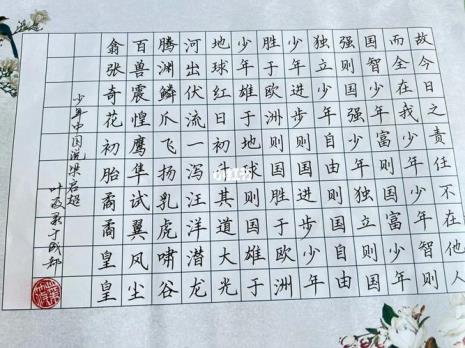 故今日之责任不在他人
而全在我少年少年智则
国智少年富则国富少年
强则国强少年独立则国
独立少年自由则国自由
少年进步则国进步少年
胜于欧洲则国胜于欧洲
少年雄于地球则国雄于
地球红日初升其道大光
河出伏流一泻汪洋潜龙
腾渊鳞爪飞扬乳虎啸谷
百兽震惶鹰隼试翼风尘
翕张奇花初胎矞矞皇皇
少年中国说梁启超
叶 录于成都
小红书